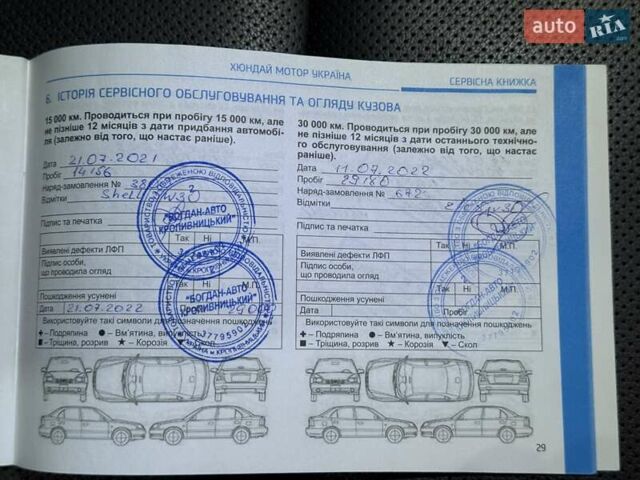 auto RIA .com
ХЮНДАЙ МОТОР УКРАЇНА
СЕРВІСНА КНИЖКА
6. ІСТОРІЯ СЕРВІСНОГО ОБСЛУГОВУВАННЯ ТА ОГЛЯДУ КУЗОВА
15 000 км. Проводиться при пробігу 15 000 км, але
не пізніше 12 місяців з дати придбання автомобі-
ля (залежно від того, що настає раніше).
Дата 21.07.2021
Пробіг 14156
Наряд-замовлення №
Відмітки Shell
Підпис та печатка
Так Ні М.П.
Виявлені дефекти ЛФП
Підпис особи,
що проводила огляд
Пошкодження усунені
Дата 21.07.2022
Використовуйте такі символи для позначення пошкоджень
Подряпина Вм'ятина, випуклість
Тріщина, розрив Корозія Скол
"БОГДАН-АВТО
КРОПИВНИЦЬКИЙ"
"БОГДАН-АВТО
КРОПИВНИЦЬКИЙ"
30 000 км. Проводиться при пробігу 30 000 км, але
не пізніше 12 місяців з дати останнього технічно-
го обслуговування (залежно від того, що настає
раніше).
Дата 11.07.2022
Пробіг 29180
Наряд-замовлення № 672
Відмітки
Підпис та печатка
Так Ні М.П.
Виявлені дефекти ЛФП
Підпис особи,
що проводила огляд
Пошкодження усунені
Дата Пробіг
Використовуйте такі символи для позначення пошкоджень
Подряпина Вм'ятина, випуклість
Тріщина, розрив Корозія Скол
29